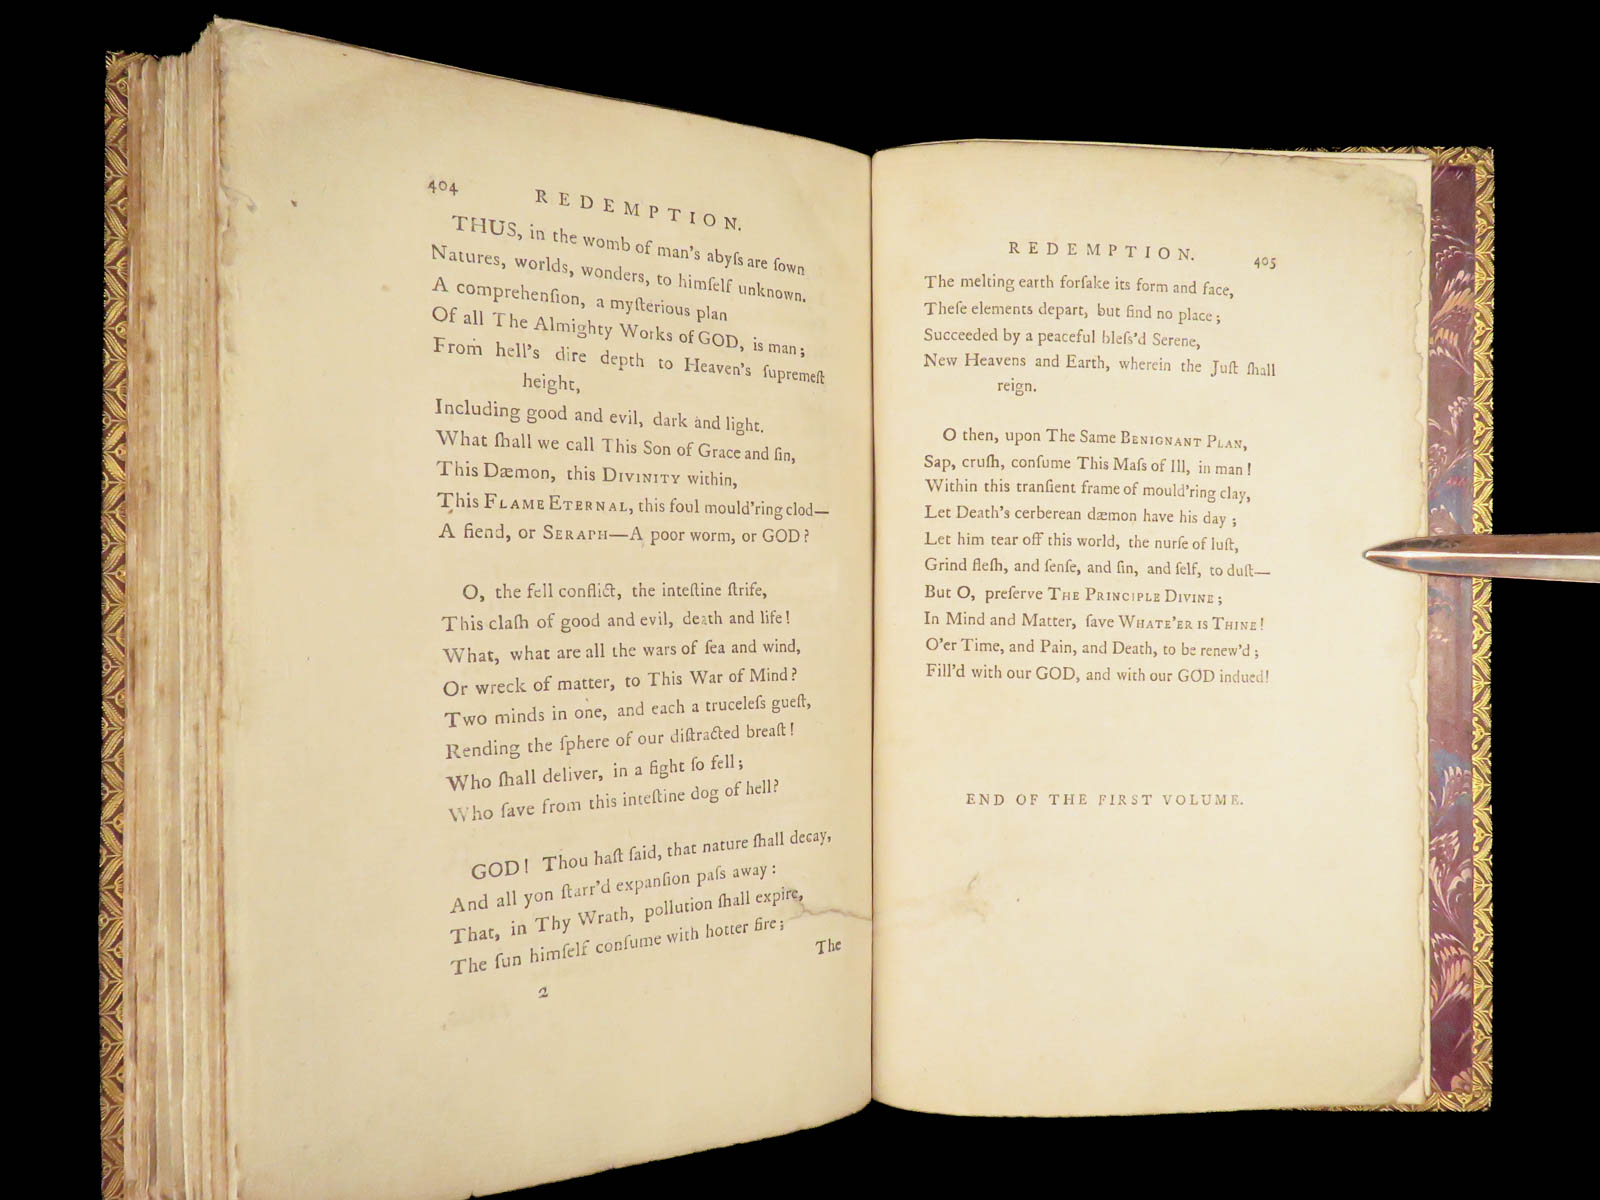 404 REDEMPTION.
THUS, in the womb of man's abyſs are ſown
Natures, worlds, wonders, to himſelf unknown.
A comprehenſion, a myſterious plan
Of all The Almighty Works of GOD, is man;
From hell's dire depth to Heaven's ſupremeſt
height,
Including good and evil, dark and light.
What ſhall we call This Son of Grace and ſin,
This Dæmon, this DIVINITY within,
This FLAME ETERNAL, this foul mould'ring clod—
A fiend, or SERAPH—A poor worm, or GOD?
O, the fell conflict, the inteſtine ſtrife,
This claſh of good and evil, death and life!
What, what are all the wars of ſea and wind,
Or wreck of matter, to This War of Mind?
Two minds in one, and each a truceleſs gueſt,
Rending the ſphere of our diſtracted breaſt!
Who ſhall deliver, in a fight ſo fell;
Who ſave from this inteſtine dog of hell?
GOD! Thou haſt ſaid, that nature ſhall decay,
And all yon ſtarr'd expanſion paſs away:
That, in Thy Wrath, pollution ſhall expire,
The ſun himſelf conſume with hotter fire;
The
2
REDEMPTION. 405
The melting earth forſake its form and face,
Theſe elements depart, but find no place;
Succeeded by a peaceful bleſs'd Serene,
New Heavens and Earth, wherein the Juſt ſhall
reign.
O then, upon The Same BENIGNANT PLAN,
Sap, cruſh, conſume This Maſs of Ill, in man!
Within this tranſient frame of mould'ring clay,
Let Death's cerberean dæmon have his day;
Let him tear off this world, the nurſe of luſt,
Grind fleſh, and ſenſe, and ſin, and ſelf, to duſt—
But O, preſerve THE PRINCIPLE DIVINE;
In Mind and Matter, ſave WHATE'ER IS THINE!
O'er Time, and Pain, and Death, to be renew'd;
Fill'd with our GOD, and with our GOD indued!
END OF THE FIRST VOLUME.